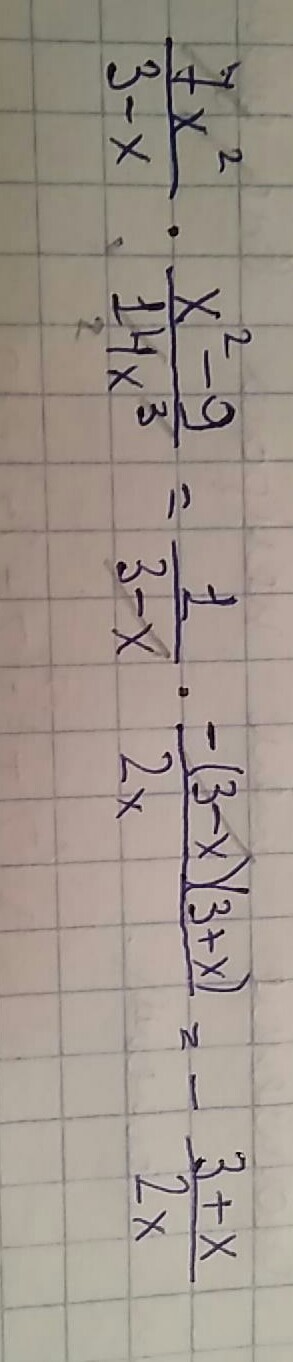 7x²/(3-x) · (x²-9)/(14x³) = 1/(3-x) · (-(3-x)(3+x))/(2x) = - (3+x)/(2x)
2